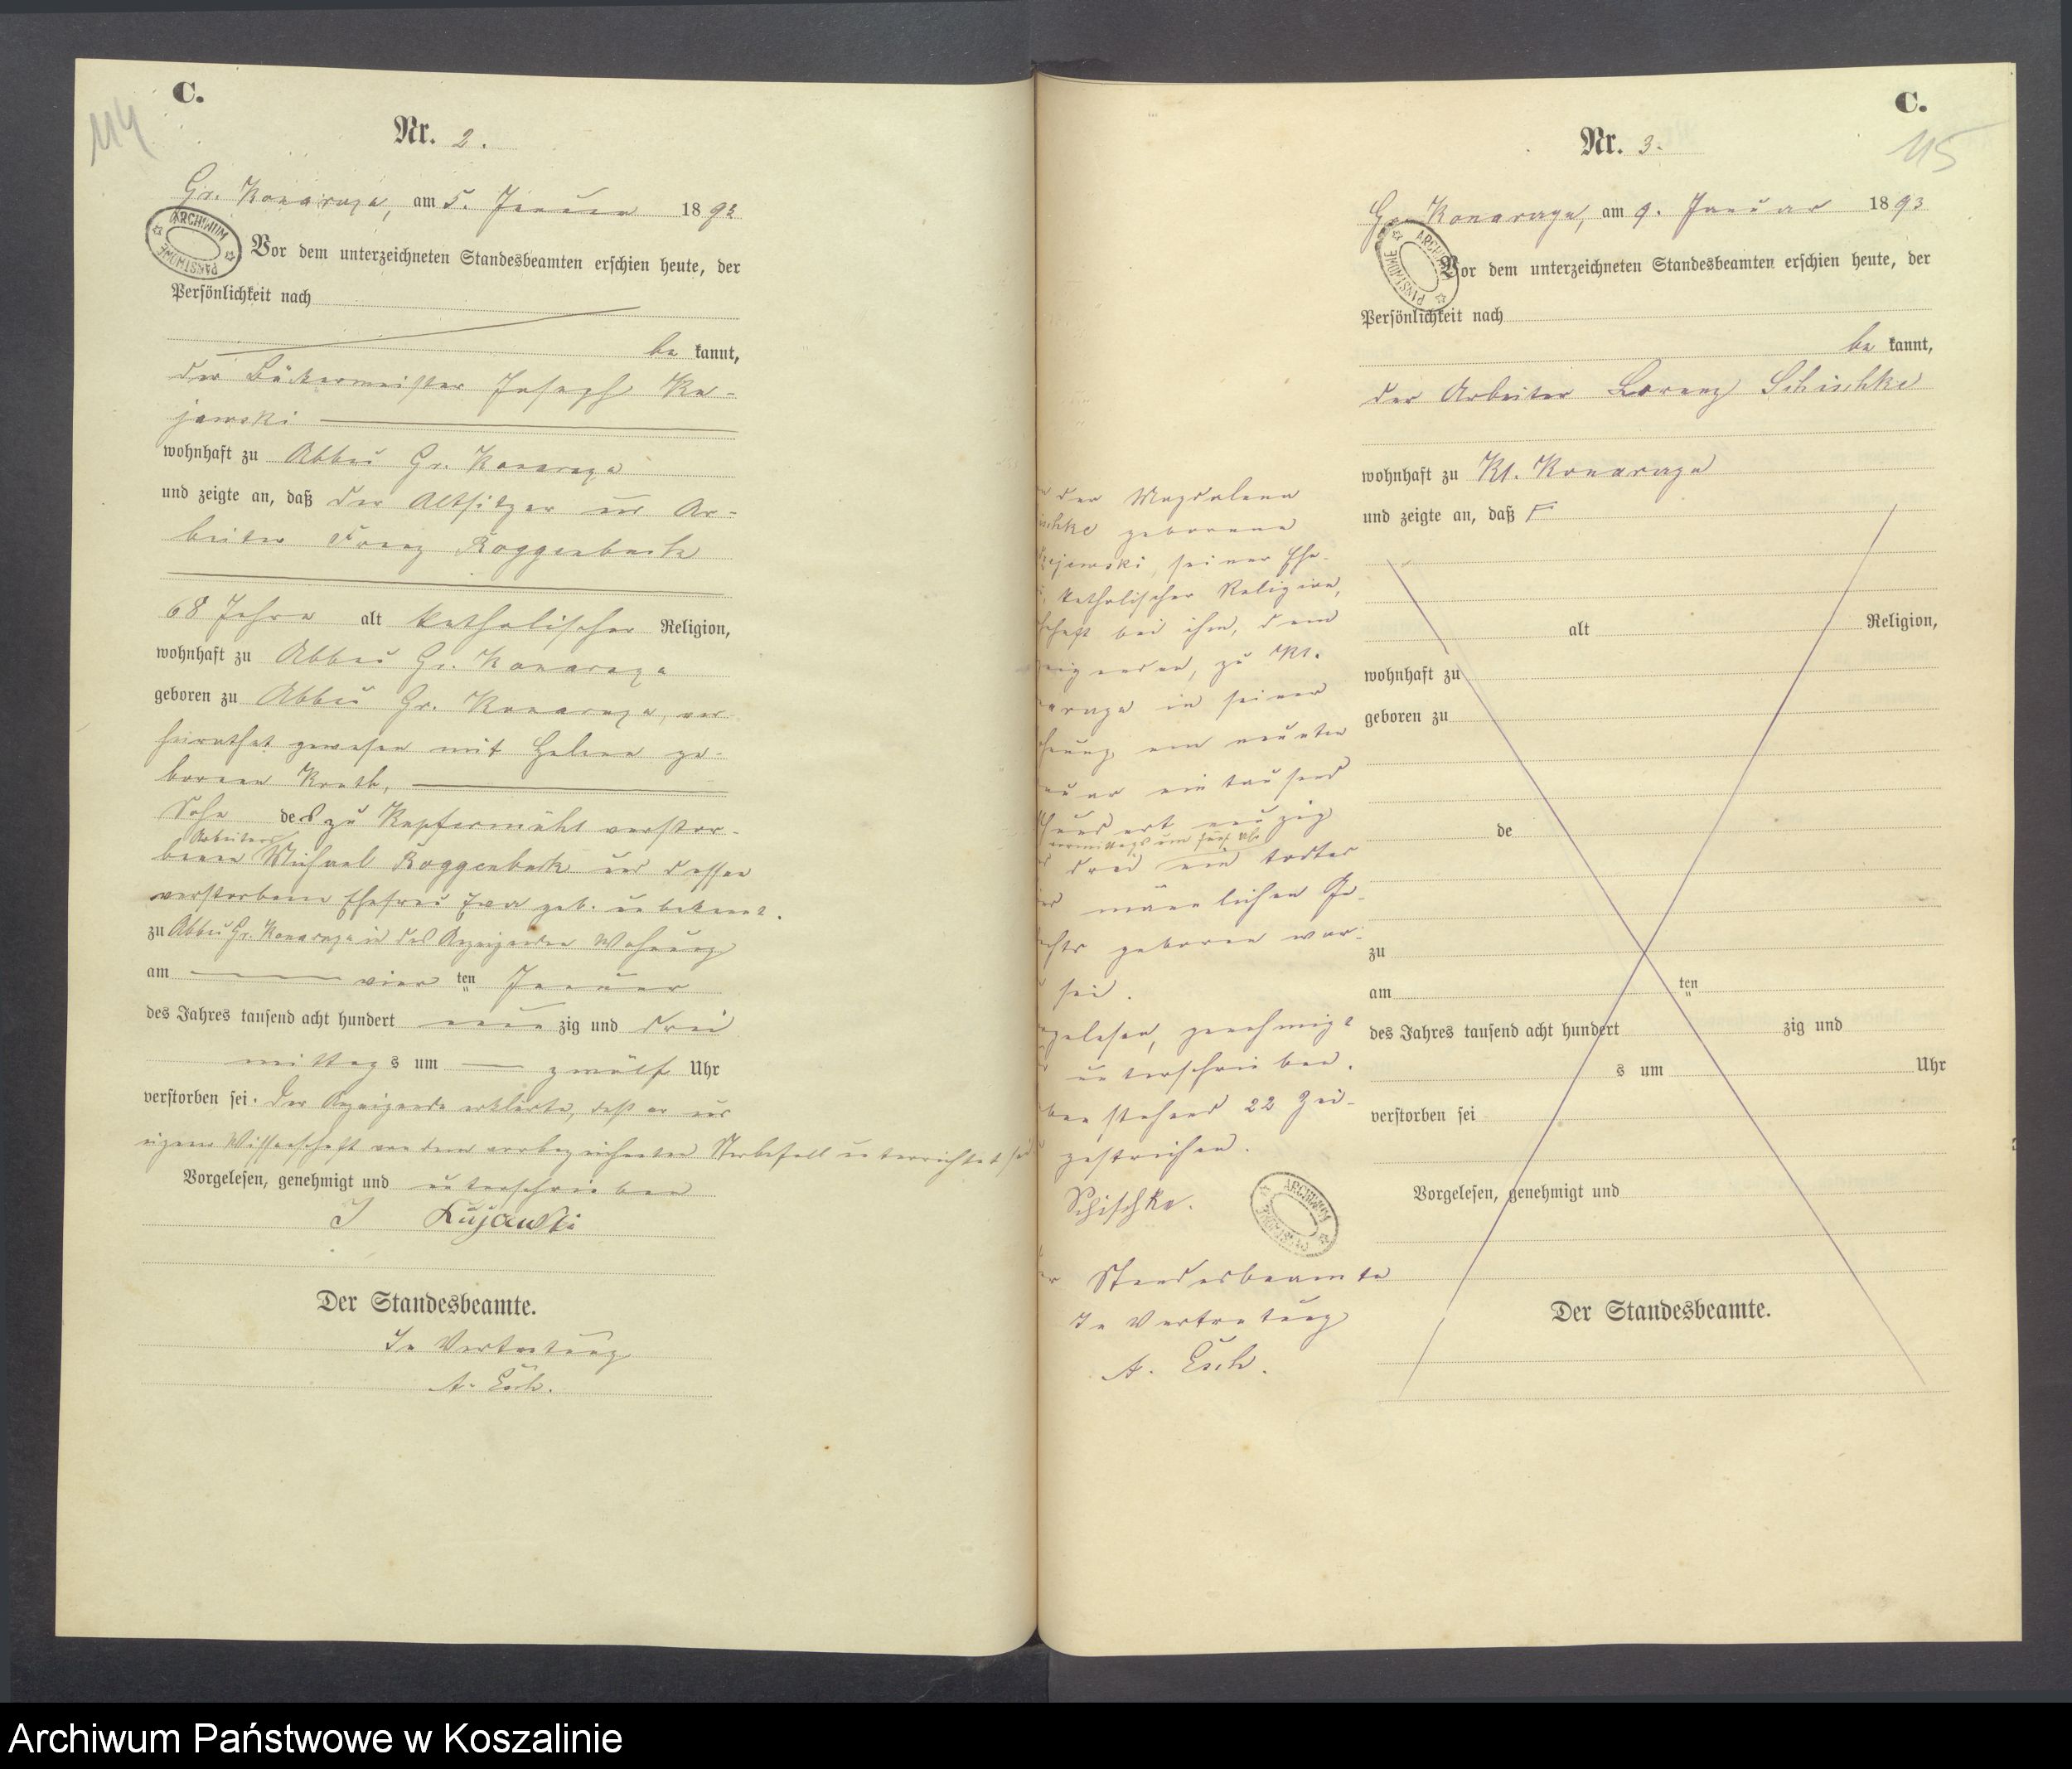 C.
114
Nr. 2.
Gr. Konarzyn, am 5. Januar 1893
ARCHIWUM PAŃSTWOWE
Vor dem unterzeichneten Standesbeamten erschien heute, der
Persönlichkeit nach
be kannt,
der Bäckermeister Joseph Ku-
jawski
wohnhaft zu Abbau Gr. Konarzyn
und zeigte an, daß der Altsitzer und Ar-
beiter Franz Roggenbuck
68 Jahre alt katholischer Religion,
wohnhaft zu Abbau Gr. Konarzyn
geboren zu Abbau Gr. Konarzyn, ver-
heirathet gewesen mit Helene ge-
borenen
Sohn des zu Kupfermühl verstor-
Arbeiters
benen Michael Roggenbuck und dessen
verstorbene Ehefrau Eva geb. unbekannt.
zu Abbau Gr. Konarzyn in des Anzeigenden Wohnung
am vier ten Januar
des Jahres tausend acht hundert neun zig und drei
mittags um zwölf Uhr
verstorben sei. Der Anzeigende erklärte, daß er aus
eigener Wissenschaft von dem vorbezeichneten Sterbefall unterrichtet sei
Vorgelesen, genehmigt und unterschrieben
J Kujawski
Der Standesbeamte.
In Vertretung
A. Esch.
C.
115
Nr. 3.
Gr. Konarzyn, am 9. Januar 1893
ARCHIWUM PAŃSTWOWE
Vor dem unterzeichneten Standesbeamten erschien heute, der
Persönlichkeit nach
be kannt,
der Arbeiter Lorenz Schischke
wohnhaft zu Kl. Konarzyn
und zeigte an, daß
alt Religion,
wohnhaft zu
geboren zu
de
zu
am ten
des Jahres tausend acht hundert zig und
s um Uhr
verstorben sei
Vorgelesen, genehmigt und
Der Standesbeamte.
der Magdalena
ischke geborene
jewski, seiner Ehe-
katholischer Religion,
haft bei ihm, dem
zeigenden, zu Kl.
narzyn in seiner
hnung, am neunten
nuar ein tausend
hundert neunzig
vormittags um fünf Uhr
drei ein todtes
männlichen Ge-
chts geboren wor-
sei.
gelesen, genehmigt
unterschrieben.
benstehend 22 Zei-
gestrichen.
Schischke.
ARCHIWUM PAŃSTWOWE
er Standesbeamte
In Vertretung
A. Esch.
Archiwum Państwowe w Koszalinie